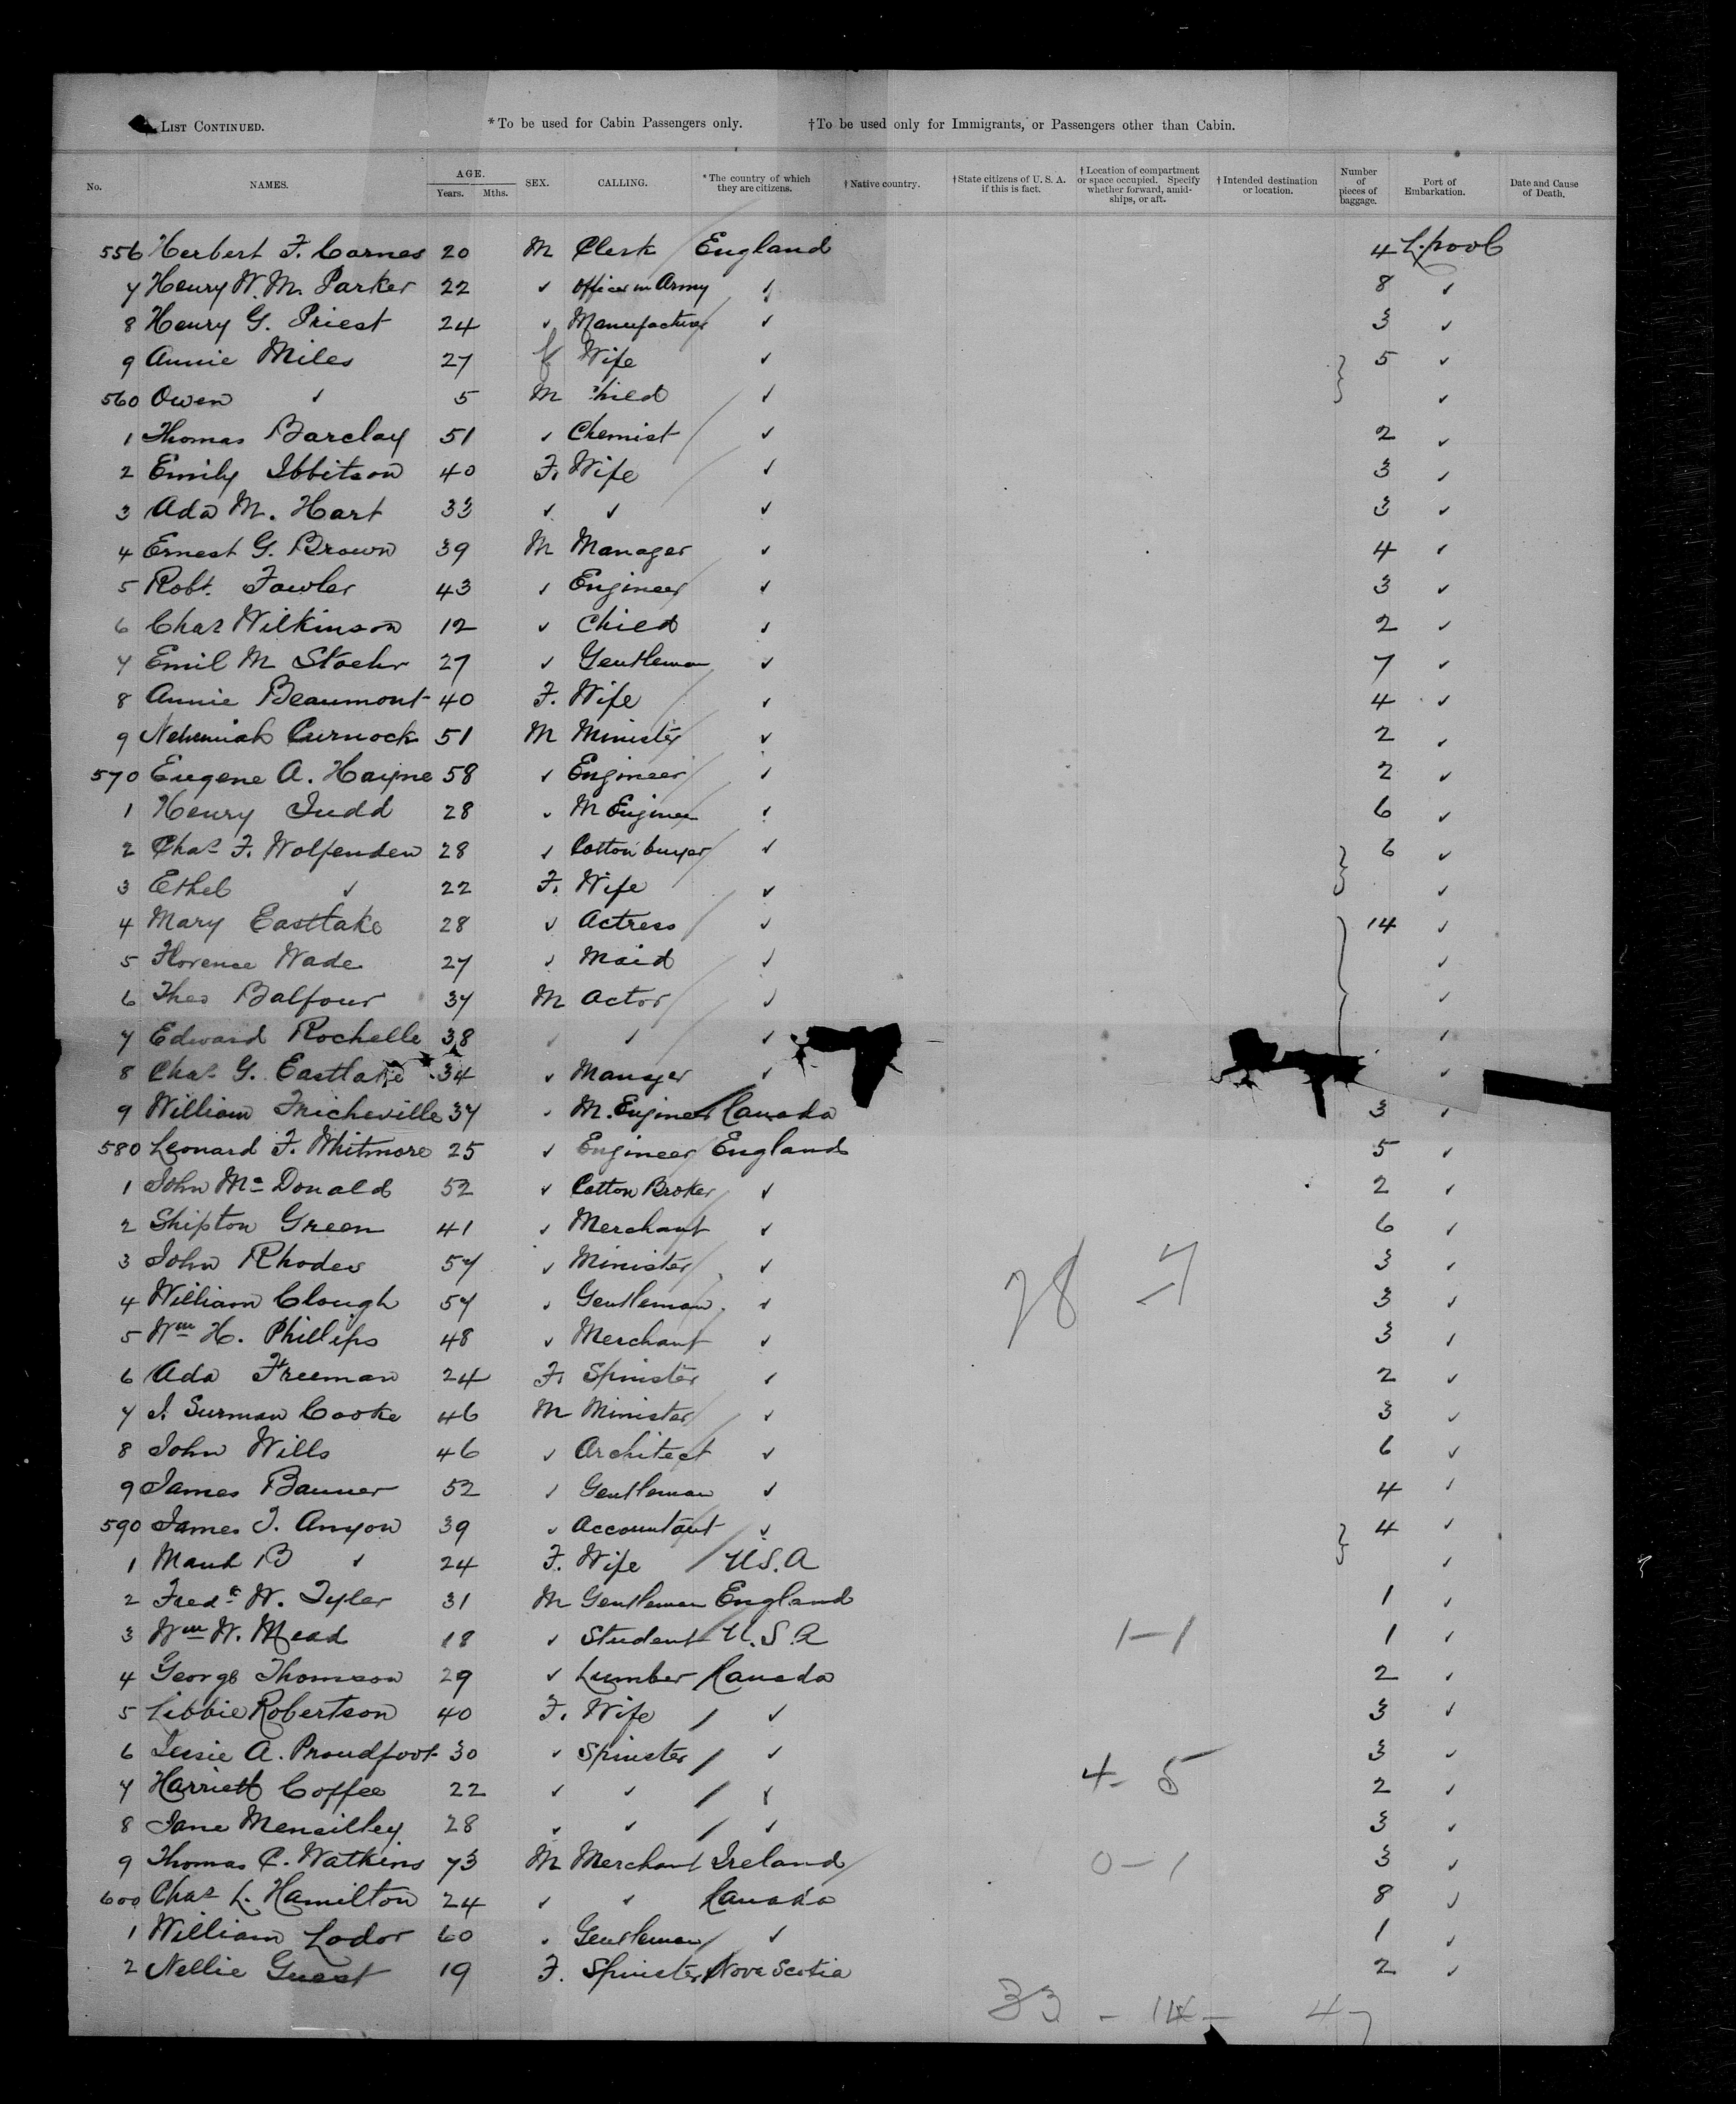 LIST CONTINUED. *To be used for Cabin Passengers only. †To be used only for Immigrants, or Passengers other than Cabin.
No. NAMES. AGE. Years. Mths. SEX. CALLING. *The country of which they are citizens. †Native country. †State citizens of U. S. A. if this is fact. †Location of compartment or space occupied. Specify whether forward, amid-ships, or aft. †Intended destination or location. Number of pieces of baggage. Port of Embarkation. Date and Cause of Death.
556 Herbert F. Carnes 20 M Clerk England 4 L.pool
7 Henry W. M. Parker 22 ✓ Officer in Army ✓ 8 ✓
8 Henry G. Priest 24 ✓ Manufacturer ✓ 3 ✓
9 Annie Miles 27 f Wife ✓ 5 ✓
560 Owen ✓ 5 M Child ✓ ✓
1 Thomas Barclay 51 ✓ Chemist ✓ 2 ✓
2 Emily Ibbitson 40 F. Wife ✓ 3 ✓
3 Ada M. Hart 33 ✓ ✓ ✓ 3 ✓
4 Ernest G. Brown 39 M Manager ✓ 4 ✓
5 Robt. Fowler 43 ✓ Engineer ✓ 3 ✓
6 Chas Wilkinson 12 ✓ Child ✓ 2 ✓
7 Emil M Stoehr 27 ✓ Gentleman ✓ 7 ✓
8 Annie Beaumont 40 F. Wife ✓ 4 ✓
9 Nehemiah Curnock 51 M Minister ✓ 2 ✓
570 Eugene A. Hayne 58 ✓ Engineer ✓ 2 ✓
1 Henry Judd 28 ✓ M Engineer ✓ 6 ✓
2 Chas F. Wolfenden 28 ✓ Cotton buyer ✓ 6 ✓
3 Ethel ✓ 22 F. Wife ✓ ✓
4 Mary Eastlake 28 ✓ Actress ✓ 14 ✓
5 Florence Wade 27 ✓ Maid ✓ ✓
6 Theo Balfour 37 M Actor ✓ ✓
7 Edward Rochelle 38 ✓ ✓ ✓ ✓
8 Chas G. Eastlake 34 ✓ Manager ✓ ✓
9 William Fricheville 37 ✓ M. Engineer Canada 3 ✓
580 Leonard F. Whitmore 25 ✓ Engineer England 5 ✓
1 John Mc Donald 52 ✓ Cotton Broker ✓ 2 ✓
2 Shipton Green 41 ✓ Merchant ✓ 6 ✓
3 John Rhodes 57 ✓ Minister ✓ 3 ✓
28 - 7
4 William Clough 57 ✓ Gentleman ✓ 3 ✓
5 Wm H. Phillips 48 ✓ Merchant ✓ 3 ✓
6 Ada Freeman 24 F. Spinster ✓ 2 ✓
7 J. Surman Cooke 46 M Minister ✓ 3 ✓
8 John Wills 46 ✓ Architect ✓ 6 ✓
9 James Banner 52 ✓ Gentleman ✓ 4 ✓
590 James T. Anyon 39 ✓ Accountant ✓ 4 ✓
1 Maud B ✓ 24 F. Wife U.S.A ✓
2 Fredk W. Tyler 31 M Gentleman England 1 ✓
3 Wm W. Mead 18 ✓ Student U.S.A 1-1 1 ✓
4 George Thomson 29 ✓ Lumber Canada 2 ✓
5 Libbie Robertson 40 F. Wife ✓ 3 ✓
6 Jessie A. Proudfoot 30 ✓ Spinster ✓ 3 ✓
4-5
7 Harriett Coffee 22 ✓ ✓ ✓ 2 ✓
8 Jane 28 ✓ ✓ ✓ 3 ✓
9 Thomas C. Watkins 73 M Merchant Ireland 0-1 3 ✓
600 Chas L. Hamilton 24 ✓ ✓ Canada 8 ✓
1 William Lodor 60 ✓ Gentleman ✓ 1 ✓
2 Nellie Guest 19 F. Spinster Nova Scotia 2 ✓
33 - 14 - 47